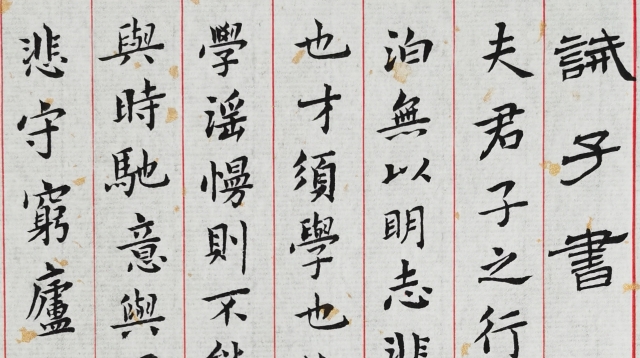 誡子書
夫君子之行
泊無以明志悲
也才須學也
學滛慢則不能
與時馳意與
悲守窮廬